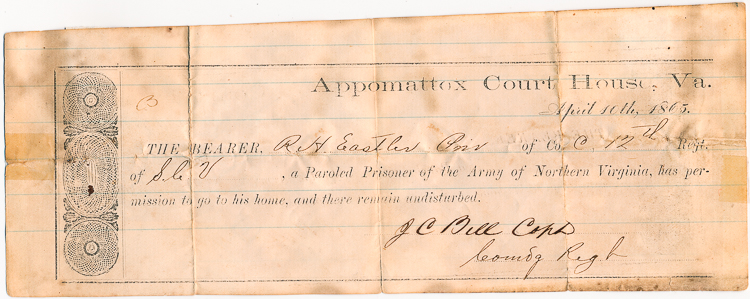 Appomattox Court House, Va.
April 10th, 1865.
THE BEARER, R. H. Eastler Priv of Co. C. 12th Regt.
of S. C. V , a Paroled Prisoner of the Army of Northern Virginia, has per-
mission to go to his home, and there remain undisturbed.
J C Bell Capt
Comdg Regt